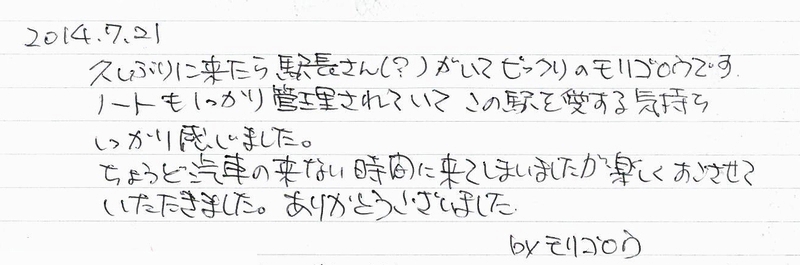 2014.7.21
久しぶりに来たら駅長さん(?)がいてビックリのモリゴロウです.
ノートもしっかり管理されていて この駅を愛する気持ち
しっかり感じました。
ちょうど汽車の来ない時間に来てしまいましたが楽しくすごさせて
いただきました。ありがとうございました.
by モリゴロウ